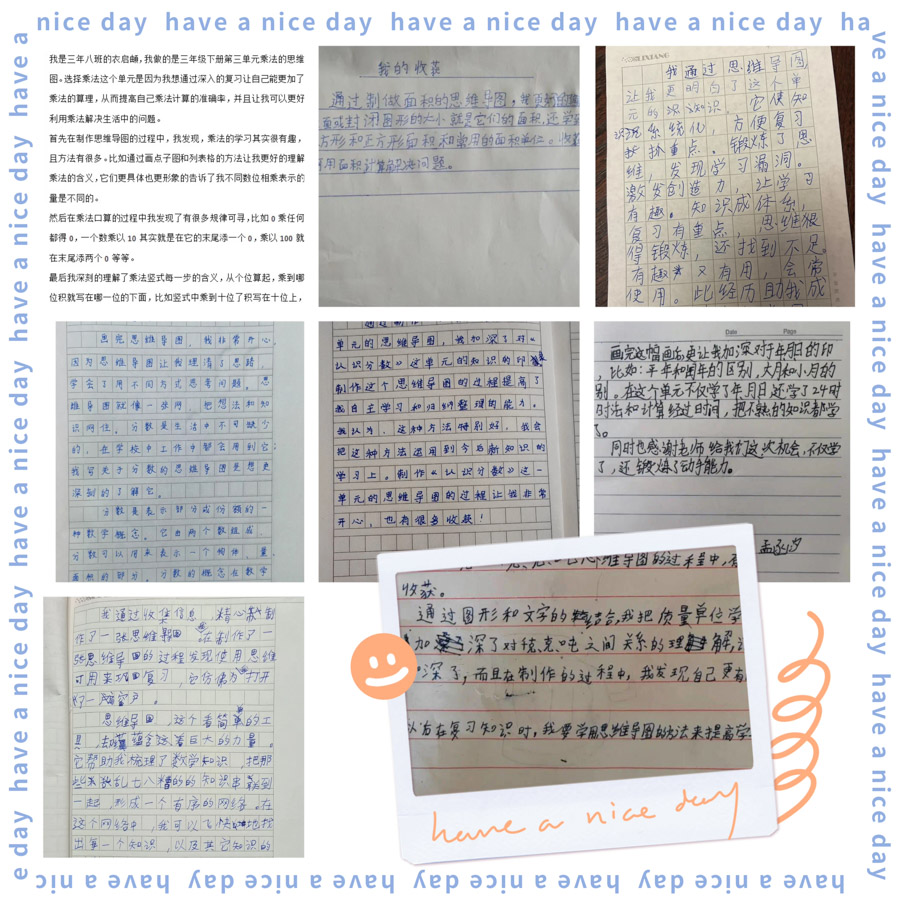 nice day have a nice day have a nice day have a nice day ha
ve a nice day have a nice day have a nice day
have a nice day have a nice day have a nice day
e day have a nice day have a nice day have a
我是三年八班的衣启皘,我做的是三年级下册第三单元乘法的思维
图。选择乘法这个单元是因为我想通过深入的复习让自己能更加了
乘法的算理,从而提高自己乘法计算的准确率,并且让我可以更好
利用乘法解决生活中的问题。
首先在制作思维导图的过程中,我发现,乘法的学习其实很有趣,
且方法有很多。比如通过画点子图和列表格的方法让我更好的理解
乘法的含义,它们更具体也更形象的告诉了我不同数位相乘表示的
量是不同的。
然后在乘法口算的过程中我发现了有很多规律可寻,比如 0 乘任何
都得 0,一个数乘以 10 其实就是在它的末尾添一个 0,乘以 100 就
在末尾添两个 0 等等。
最后我深刻的理解了乘法竖式每一步的含义,从个位算起,乘到哪
位积就写在哪一位的下面,比如竖式中乘到十位了积写在十位上,
我的收获
通过制做面积的思维导图,我更
面或封闭图形的大小就是它们的面积,还学
方形和正方形面积和常用的面积单位。
用面积计算解决问题。
我通过思维导图
让我更明白了这个单
元的知识。它使知
识系统化,方便复习
抓重点。锻炼了思
维,发现学习漏洞。
激发创造力,让学习
有趣。知识成体系,
复习有重点,思维狠
得锻炼,还找到不足
有趣又有用,会常
使用。此经历助我成
画完思维导图,我非常开心,
因为思维导图让我理清了思路,
学会了用不同方式思考问题。思
维导图就像一张网,把想法和知
识网住。分数是生活中不可缺少
的,在学校中工作中都会用到它。
我可关于分数的思维导图更想更
深刻的了解它。
分数是表示部分或份额的一
种数学概念。它由两个数组成,
分数可以用来表示一个物体、量、
面积的部分。分数的概念在数学
单元的思维导图,我加深了对《
认识分数》这单元的知识的印象。
制作这个思维导图的过程提高了
我自主学习和归纳整理的能力。
我认为,这种方法特别好,我会
把这种方法运用到今后新知识的
学习上。制作《认识分数》这一
单元的思维导图的过程让我非常
开心,也有很多收获!
Date Page
画完这幅画后更让我加深对于年月日的印
,比如:平年和闰年的区别,大月和小月的
别。在这个单元不仅学了年月日还学了24时
时法和计算经过时间,把不熟的知识都学
了。
同时也感谢老师给我们这次机会,不仅学
了,还锻炼了动手能力。
我通过收集信息,精心制
作了一张思维导图,在制作了一
张思维导图的过程发现使用思维
可用来巩固复习,它仿佛为打开
了一扇窗户。
思维导图,这个看简单的工
具,却蕴含这着巨大的力量。
它帮助我梳理了数学知识,把那
些杂乱七八糟的的知识串联到
一起,形成一个有序的网络。在
这个网络中,我可以飞快地找
出每一个知识,以及其它知识的
维导图的过程中,有
收获。
通过图形和文字的结合,我把质量单位学
加深了对钱克吨之间关系的理解,
深了,而且在制作的过程中,我发现自己更有
以后在复习知识时,我要学用思维导图的方法来提高学
have a nice day
e day have a nice day have a nice day have a nice day have a nic